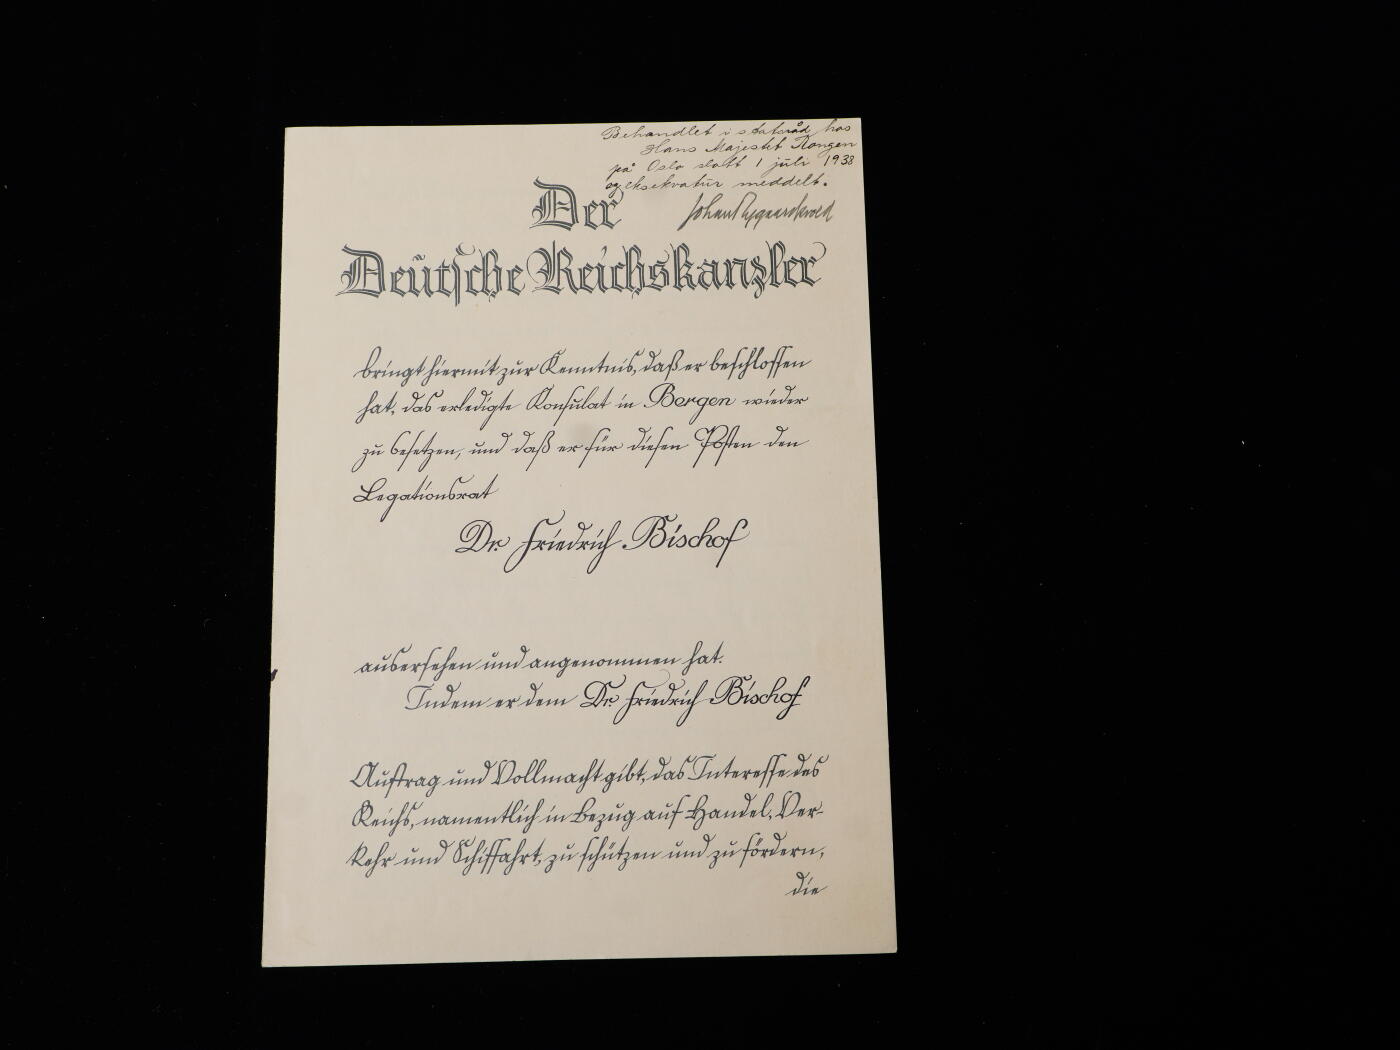 Behandlet i statsråd hos
Hans Majestet Kongen
på Oslo slott 1 juli 1938
og eksekvatur meddelt.
Der
Deutsche Reichskanzler
bringt hiermit zur Kenntnis, daß er beschlossen
hat, das erledigte Konsulat in Bergen wieder
zu besetzen, und daß er für diesen Posten den
Legationsrat
Dr. Friedrich Bischof
ausersehen und angenommen hat.
Indem er dem Dr. Friedrich Bischof
Auftrag und Vollmacht gibt, das Interesse des
Reichs, namentlich in Bezug auf Handel, Ver-
kehr und Schiffahrt, zu schützen und zu fördern,
die